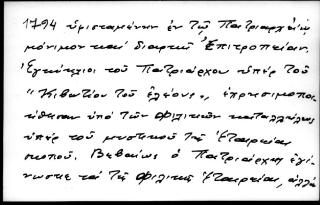 1794 ὑφισταμένων ἐν τῷ Πατριαρχείῳ
μόνιμον καί διαρκῆ Ἐπιτροπείαν.
Ἐγκύκλιοι τοῦ Πατριάρχου ὑπέρ τοῦ
"Κιβωτίου τοῦ ἐλέους", ἐχρησιμοποι-
ήθησαν ὑπό τῶν Φιλικῶν καταλλήλως
ὑπέρ τοῦ μυστικοῦ τῆς Ἑταιρείας
σκοποῦ. Βεβαίως ὁ Πατριάρχης ἐγί-
νωσκε τά τῆς Φιλικῆς Ἑταιρείας, ἀλλά